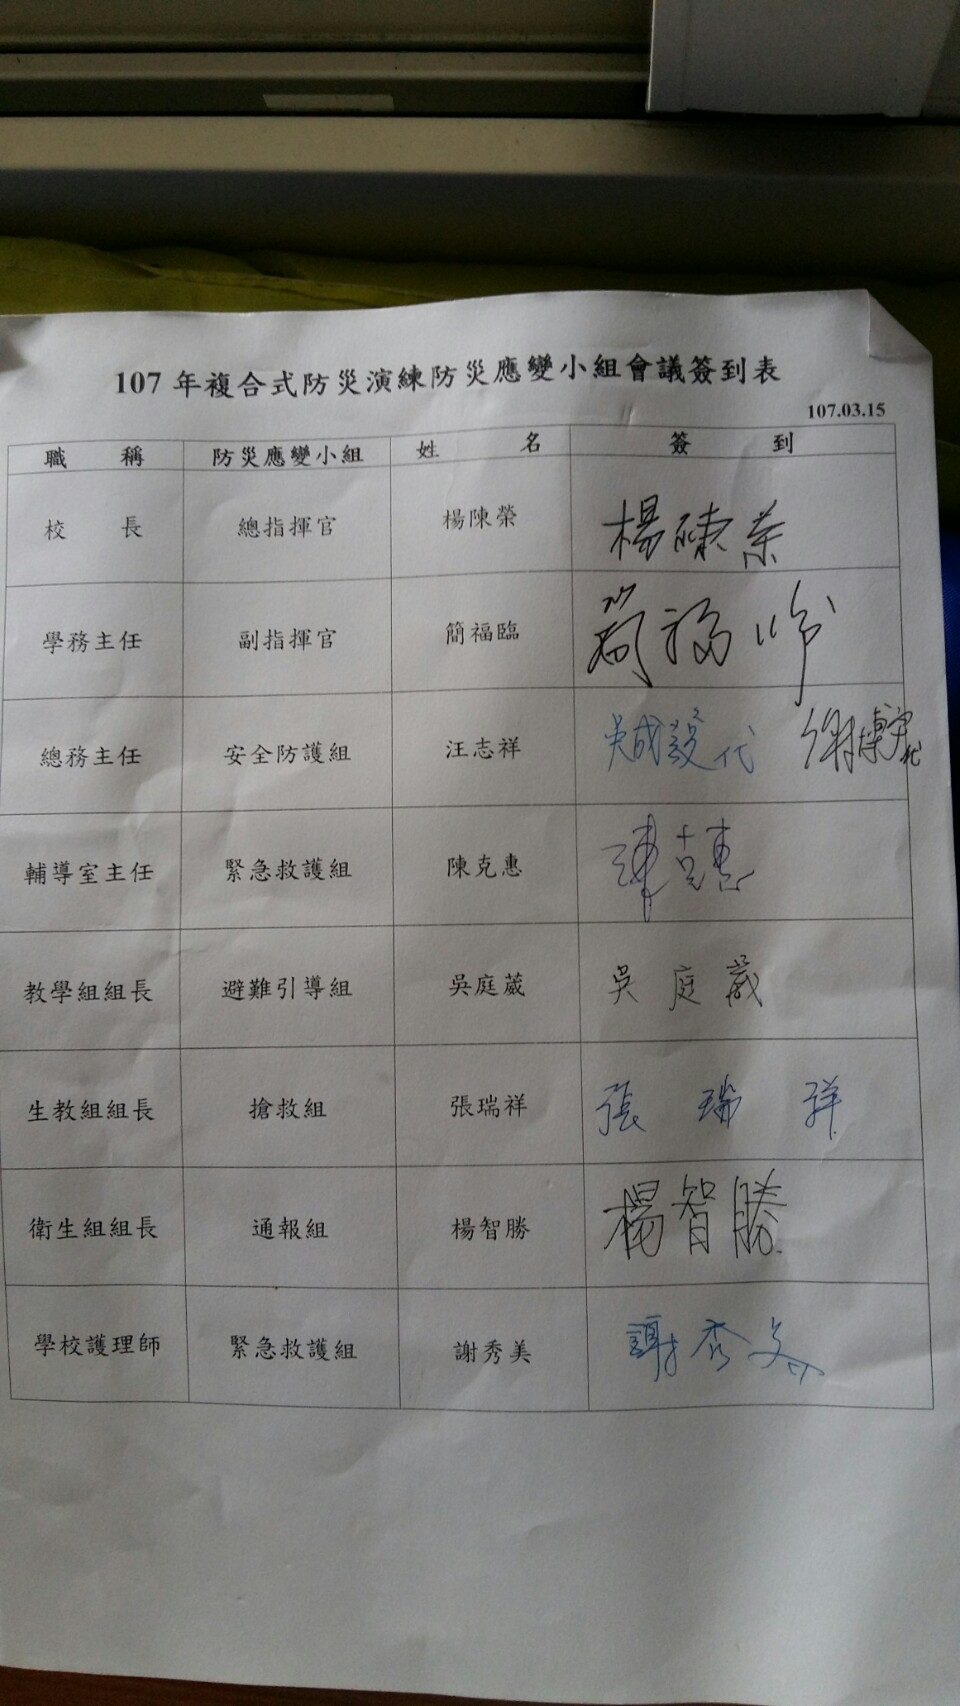 107年複合式防災演練防災應變小組會議簽到表
107.03.15
職 稱 防災應變小組 姓 名 簽 到
校 長 總指揮官 楊陳榮 楊陳榮
學務主任 副指揮官 簡福臨 簡福临
總務主任 安全防護組 汪志祥 代 代
輔導室主任 緊急救護組 陳克惠 陳克惠
教學組組長 避難引導組 吳庭葳 吳庭葳
生教組組長 搶救組 張瑞祥 張瑞祥
衛生組組長 通報組 楊智勝 楊智勝
學校護理師 緊急救護組 謝秀美 謝秀美